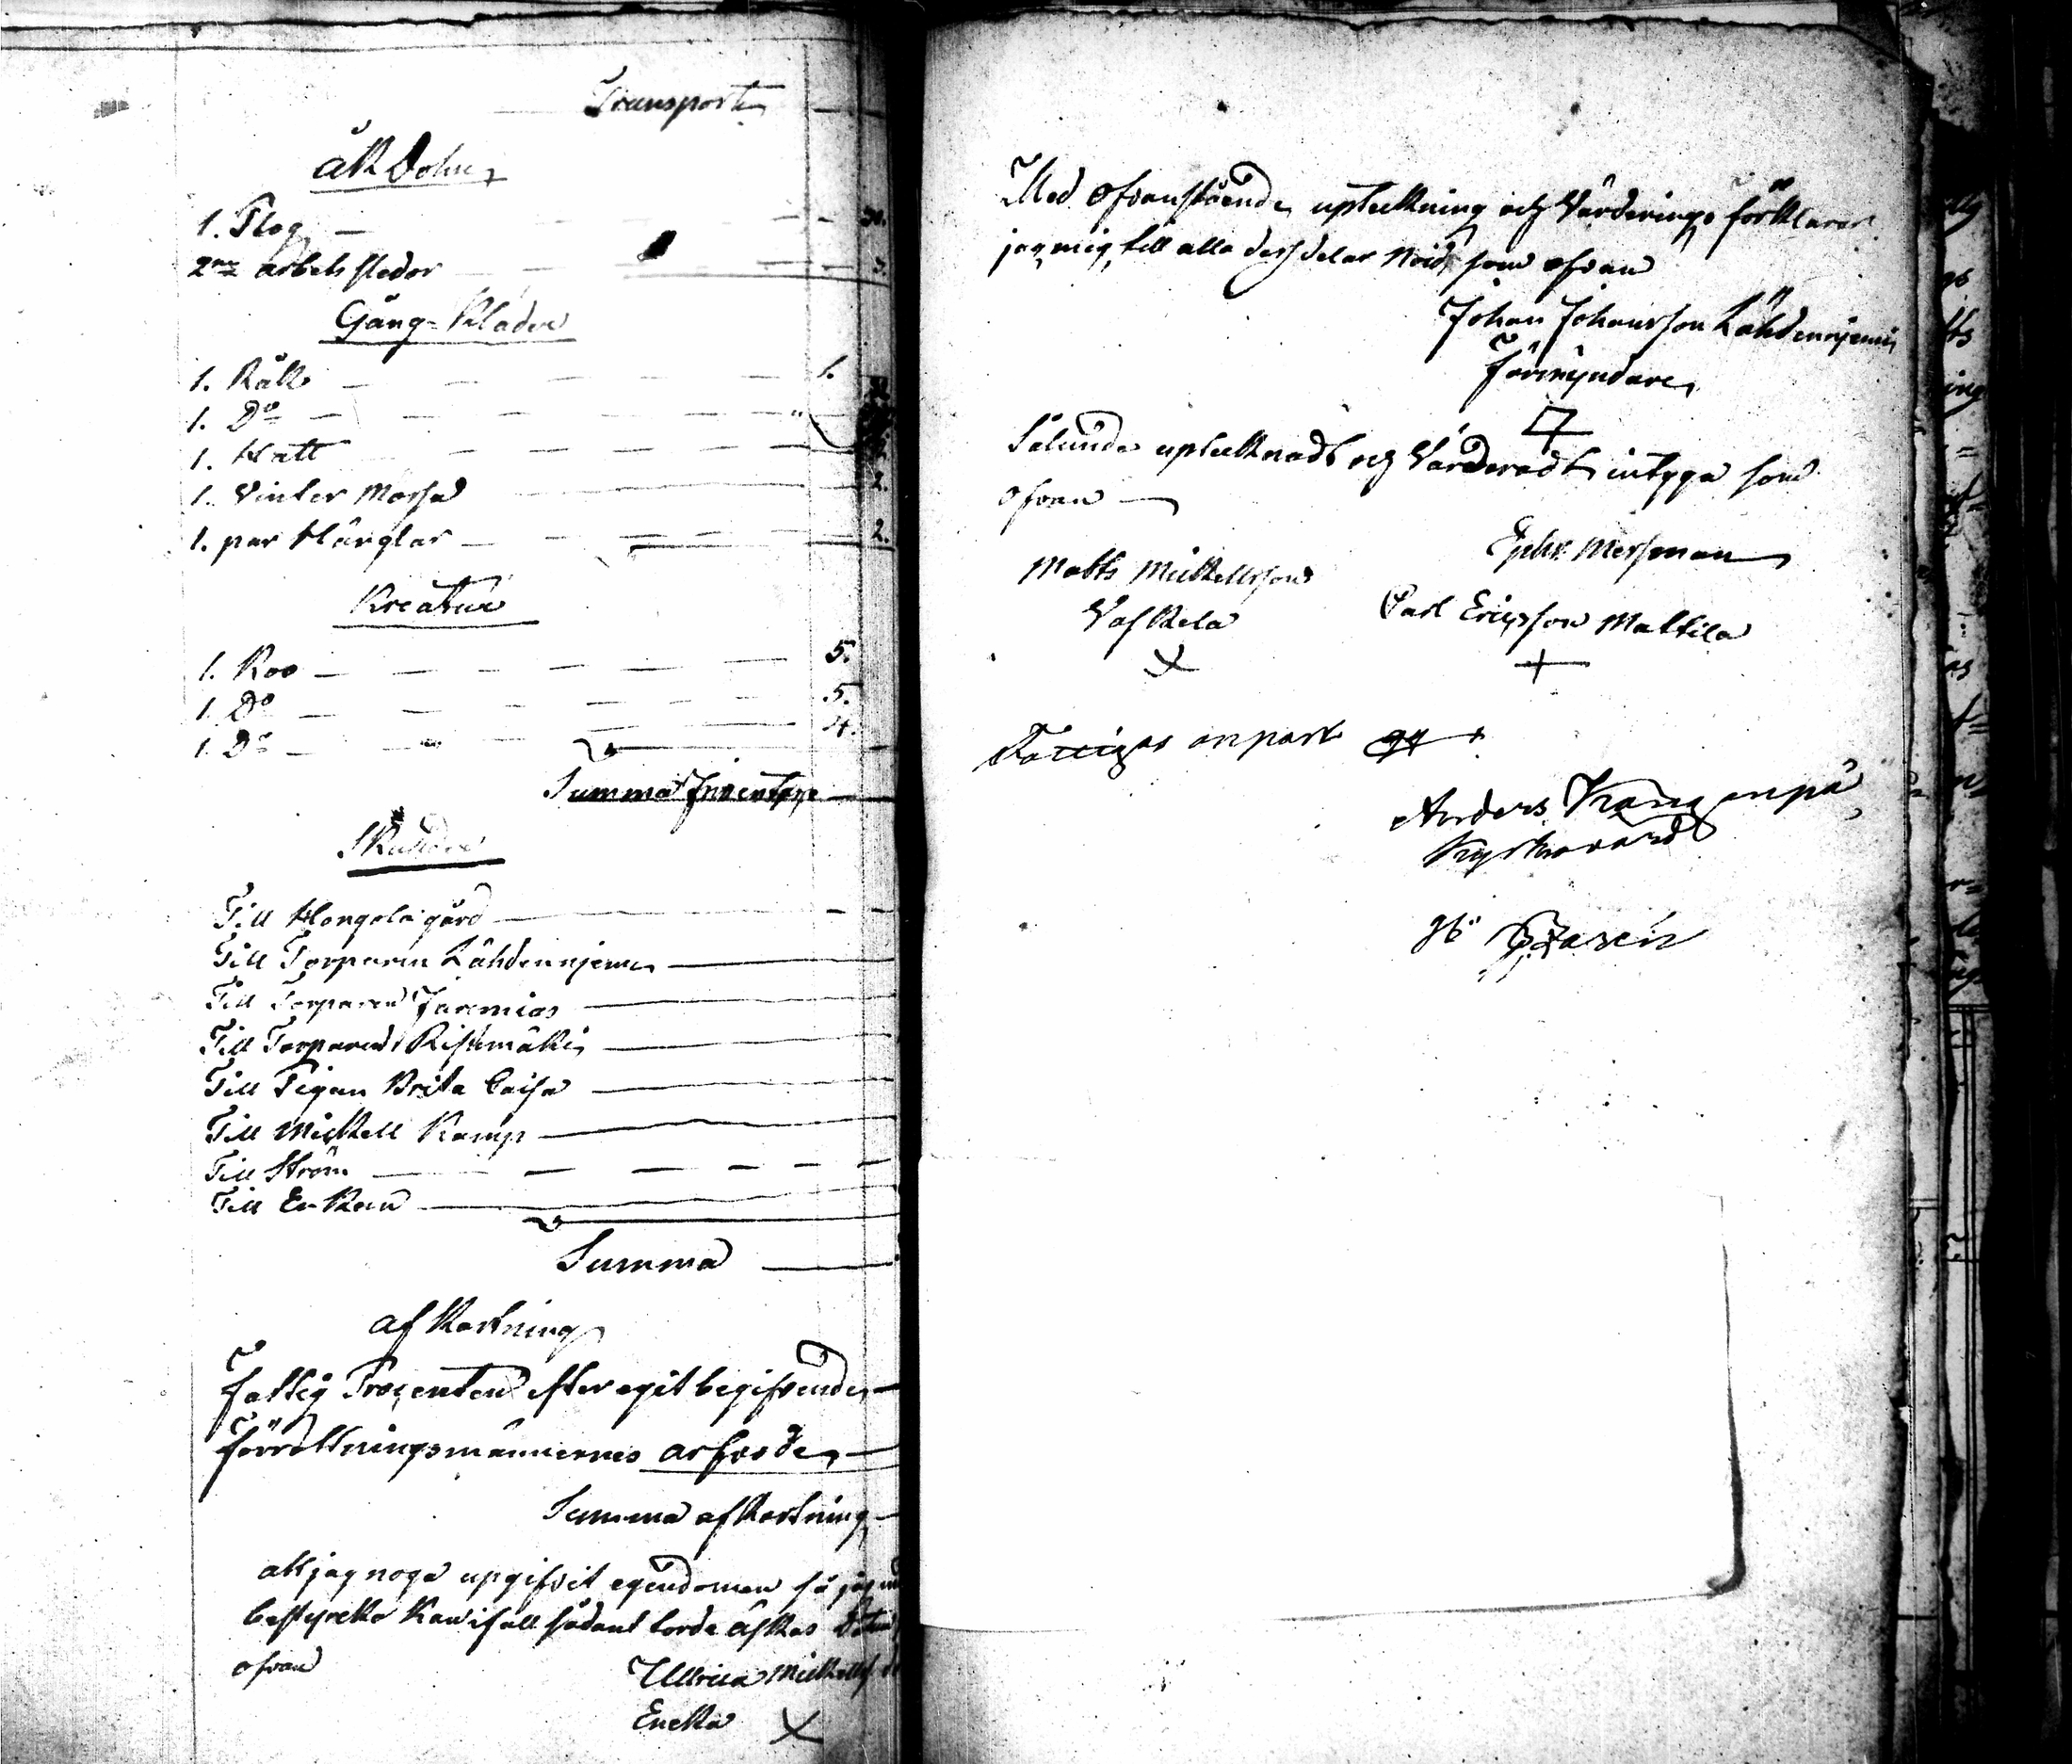 Transport
Åkdohn
1. Plog 30.
2ne arbets slädor 3.
Gång-Kläder
1. Råck 1.
1. Do "
1. Hatt
1. Vinter Mössa 2.
1. par Hänglar 2.
Kreatur
1. Koo 5.
1. Do 5.
1. Do 4.
Summa Inventarie
Skulder
Till Hongola gård
Till Torparen Lähdennjemi
Till Torparen Jeremias
Till Torparen Ristimäki
Till Pigan Brita Caisa
Till Mickell Kamp
Till Ström
Till Enkan
Summa
Afkortning
Fattig Procenten efter egit begifvande
Förrättningsmännernes arfvode
Summa afkortning
att jag noga upgifvit egendomen så jag
bestyrka kan ifall sådant torde äskas Datum
ofvan
Ullrica Mickells
Encka X
Med ofvanstående upteckning och Värderings förklarar
jag mig till alla dess delar Nöjd som ofvan
Johan Johansson Lähdennjemi
Förmyndare
Sålunde uptecknadt och Värderadt, intyga som
ofvan
Ephr. Messman
Matts Mickellsson
Vaskela
X
Carl Ericsson Mattila
+
Fattigas anpart
Anders Krång anpå
Kyrkovärd